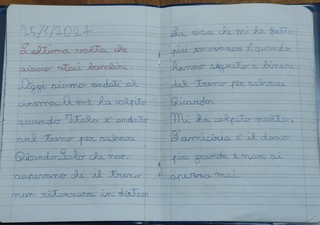 25/1/2024
L'ultima volta che
siamo stati bambini.
Oggi siamo andati al
cinema. Il mi ha colpito
quando Italo è andato
sul treno per salvare
Riccardo. Solo che non
sapevano che il treno
non ritornava in dietro
La cosa che mi ha fatto
più
quando
hanno seguito i binari
del treno per salvare
Riccardo.
Mi ha colpito molto.
L'amicizia è il dono
più grande e non si
mai.